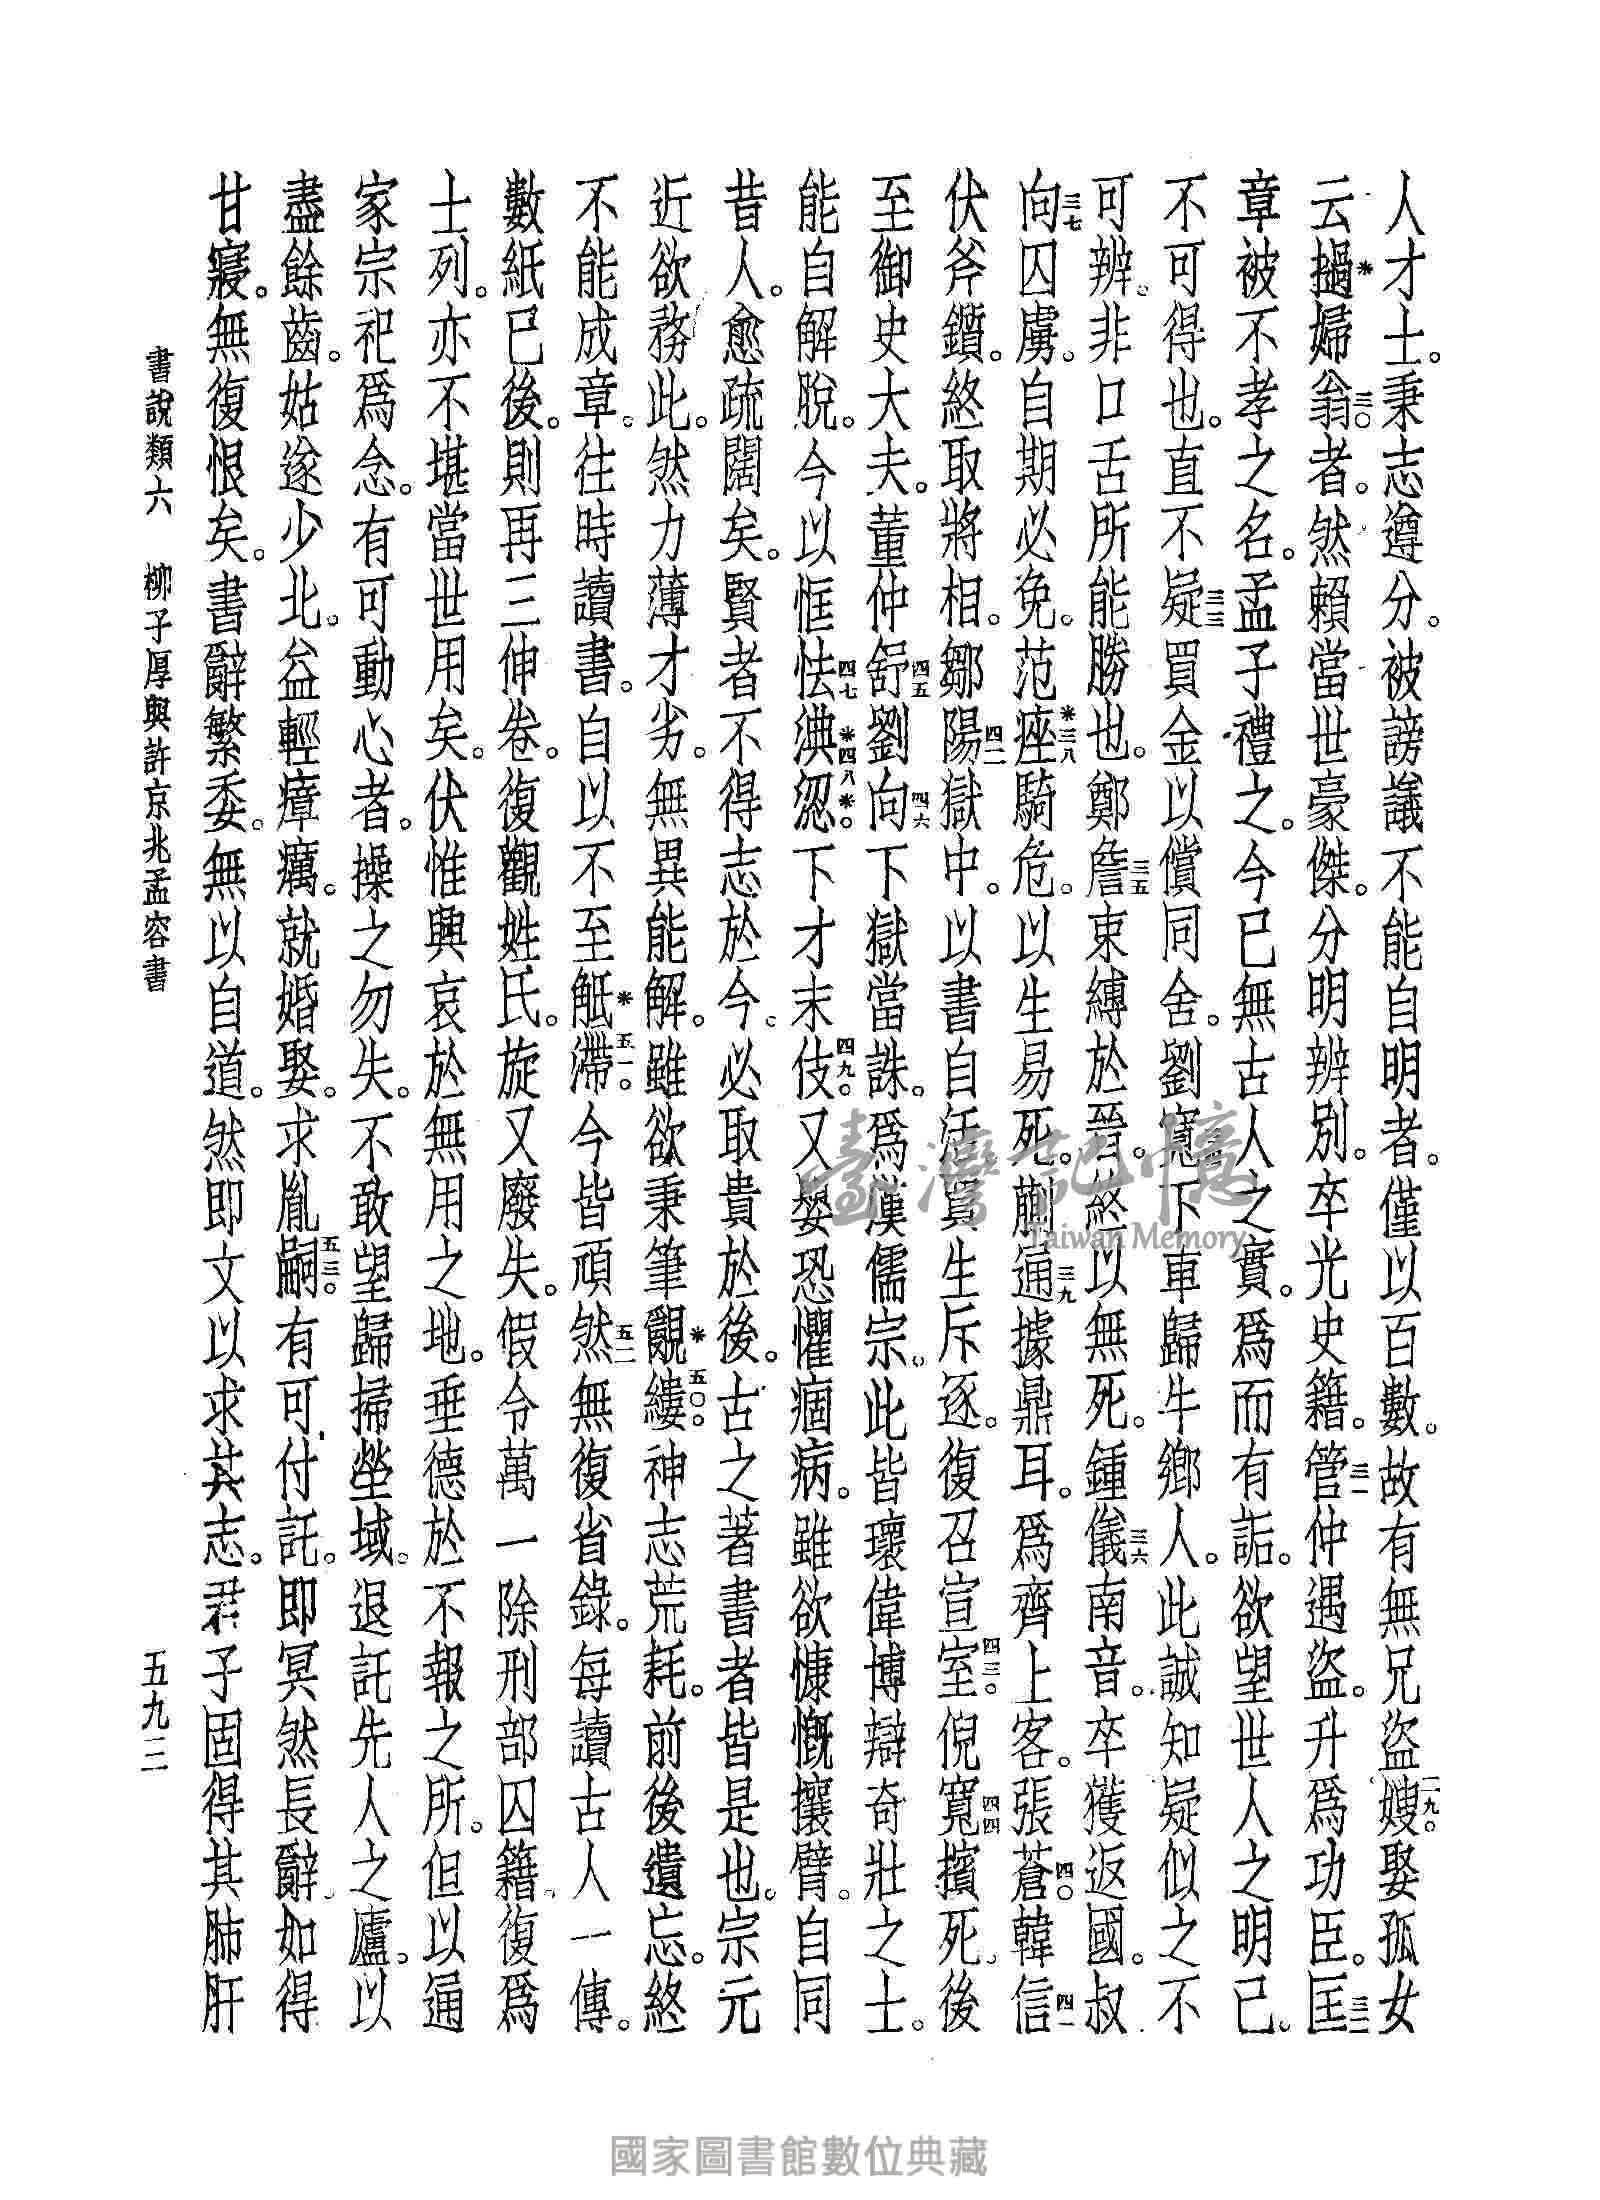 人才士。秉志遵分。被謗議不能自明者。僅以百數。故有無兄盜嫂二九。娶孤女
云撾*婦翁三〇者。然賴當世豪傑。分明辨別。卒光史籍。管三一仲遇盜。升爲功臣。匡三二
章被不孝之名。孟子禮之。今已無古人之實。爲而有詬。欲望世人之明己。
不可得也。直不疑三三買金以償同舍。劉寬下車歸牛鄉人。此誠知疑似之不
可辨。非口舌所能勝也。鄭詹三五束縛於晉。終以無死。鍾儀三六南音。卒獲返國。叔
向三七囚虜。自期必免。范痤*三八騎危。以生易死。蒯通三九據鼎耳。爲齊上客。張蒼四〇韓信四一
伏斧鑕。終取將相。鄒陽四二獄中。以書自活。賈生斥逐。復召宣室四三。倪寬四四擯死。後
至御史大夫。董仲舒四五劉向四六下獄當誅。爲漢儒宗。此皆瓌偉博辯奇壯之士。
能自解脫。今以恇怯四七淟*四八涊*。下才末伎四九。又嬰恐懼痼病。雖欲慷慨攘臂。自同
昔人。愈疏闊矣。賢者不得志於今。必取貴於後。古之著書者皆是也。宗元
近欲務此。然力薄才劣。無異能解。雖欲秉筆覼*縷五〇。神志荒耗。前後遺忘。終
不能成章。往時讀書。自以不至觝*滯五一。今皆頑然五二無復省錄。每讀古人一傳。
數紙已後。則再三伸卷。復觀姓氏。旋又廢失。假令萬一除刑部囚籍。復爲
士列。亦不堪當世用矣。伏惟興哀於無用之地。垂德於不報之所。但以通
家宗祀爲念。有可動心者。操之勿失。不敢望歸掃塋域。退託先人之廬。以
盡餘齒。姑遂少北。益輕瘴癘。就婚娶。求胤嗣五三。有可付託。即冥然長辭。如得
甘寢。無復恨矣。書辭繁委。無以自道。然即文以求其志。君子固得其肺肝
書說類六　柳子厚與許京兆孟容書　五九三
臺灣記憶
Taiwan Memory
國家圖書館數位典藏